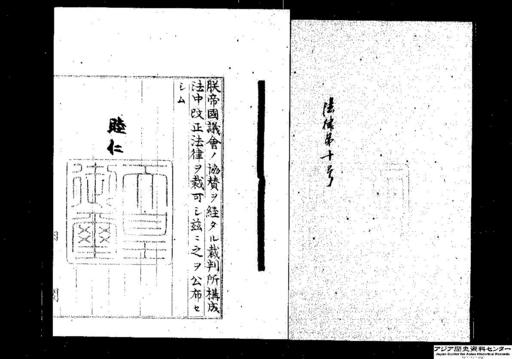 法律第十号
朕帝國議會ノ協賛ヲ経タル裁判所構成
法中改正法律ヲ裁可シ茲ニ之ヲ公布セ
シム
睦仁
天皇
御璽
アジア歴史資料センター
Japan Center for Asian Historical Records